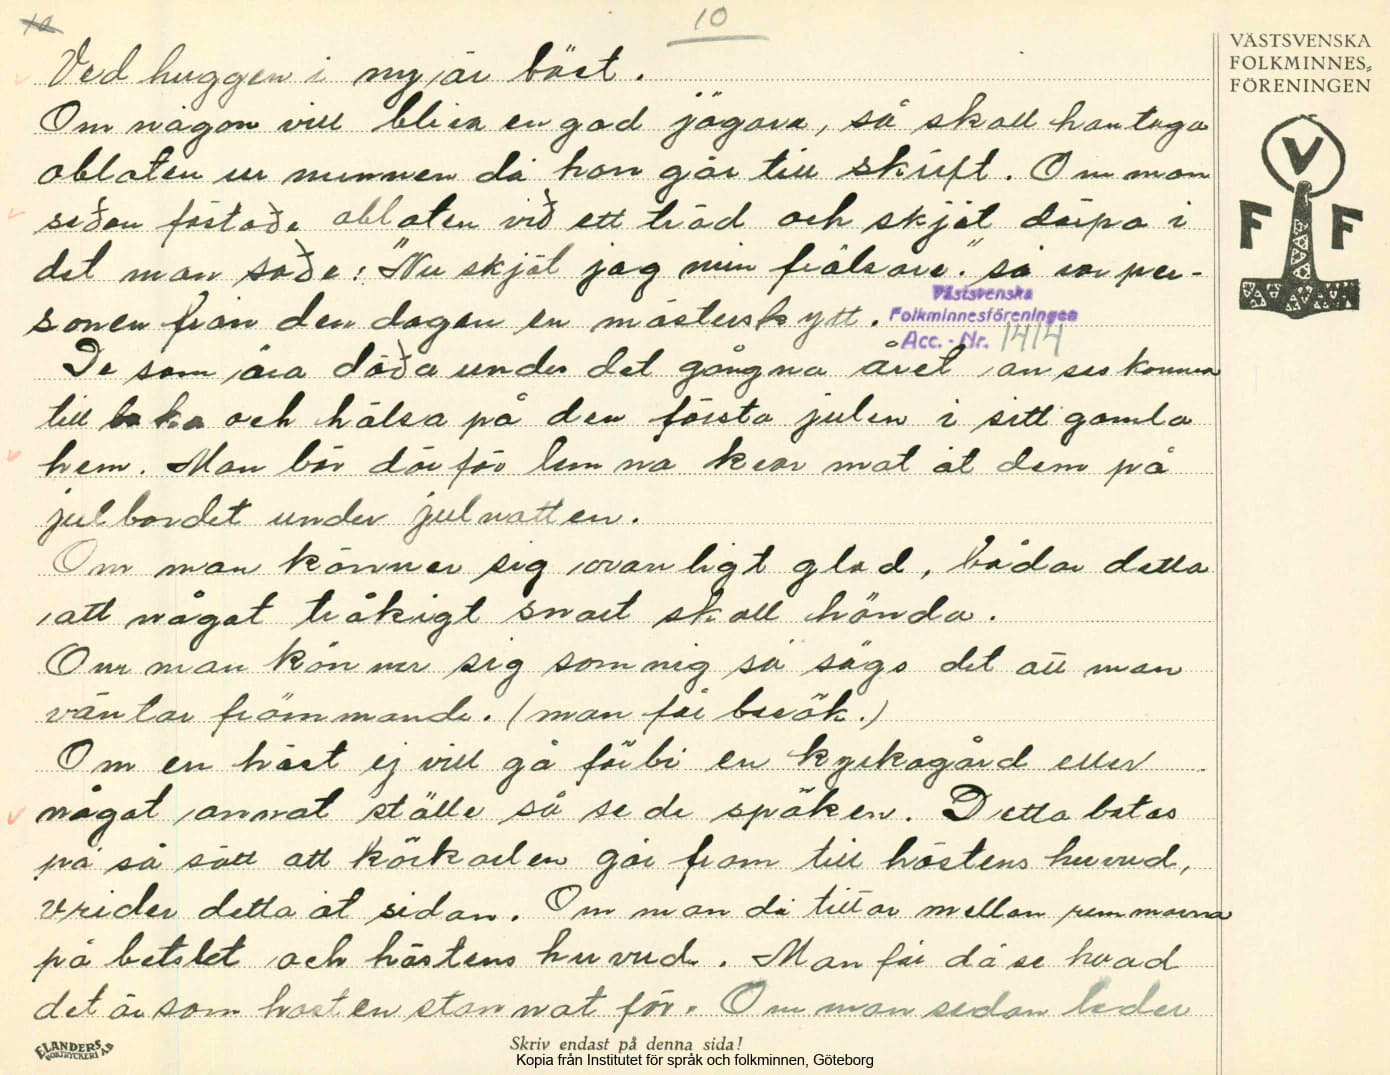 10
VÄSTSVENSKA
FOLKMINNES-
FÖRENINGEN
VFF
Ved huggen i ny är bäst.
Om någon vill bliva en god jägare, så skall han taga
oblaten ur munnen då han går till skrift. Om man
seðan fästaðe oblaten við ett träd och skjöt därpå i
det man saðe: "Nu skjöt jag min frälsare." så var per-
sonen från den dagen en mästerskytt.
Västsvenska
Folkminnesföreningen
Acc. - Nr. 1414
De som äro döða under det gångna året anses komma
till baka och hälsa på den första julen i sitt gamla
hem. Man bör därför lemna kvar mat åt dem på
julbordet under julnatten.
Om man känner sig ovanligt glad, bådar detta
att något tråkigt snart skall hända.
Om man känner sig somnig så sägs det att man
väntar främmande. (man får besök.)
Om en häst ej vill gå förbi en kyrkogård eller
något annat ställe så se de spöken. Detta botas
på så sätt att körkarlen går fram till hästens huvud,
vrider detta åt sidan. Om man då tittar mellan remmarna
på betslet och hästens huvud. Man får då se hvad
det är som hästen stannat för. Om man sedan leder
Skriv endast på denna sida!
ELANDERS
BOKTRYCKERI AB
Kopia från Institutet för språk och folkminnen, Göteborg